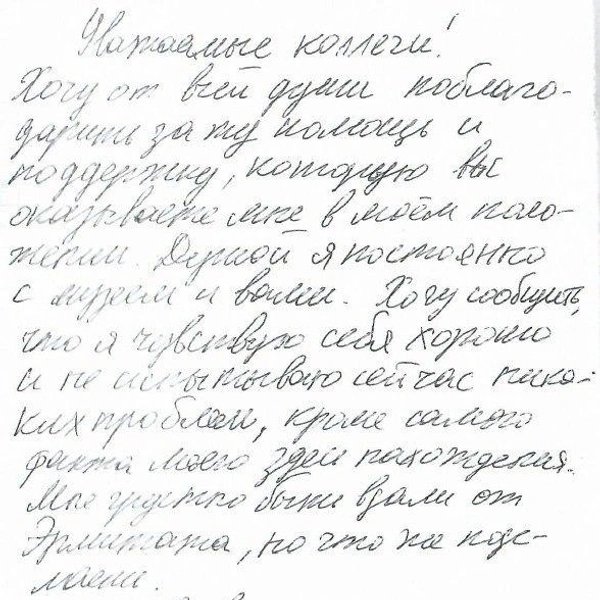 Уважаемые коллеги!
Хочу от всей души поблаго-
дарить за ту помощь и
поддержку, которую вы
оказываете мне в моём поло-
жении. Душой я постоянно
с музеем и вами. Хочу сообщить,
что я чувствую себя хорошо
и не испытываю сейчас ника-
ких проблем, кроме самого
факта моего здесь нахождения.
Мне грустно быть вдали от
Эрмитажа, но что же